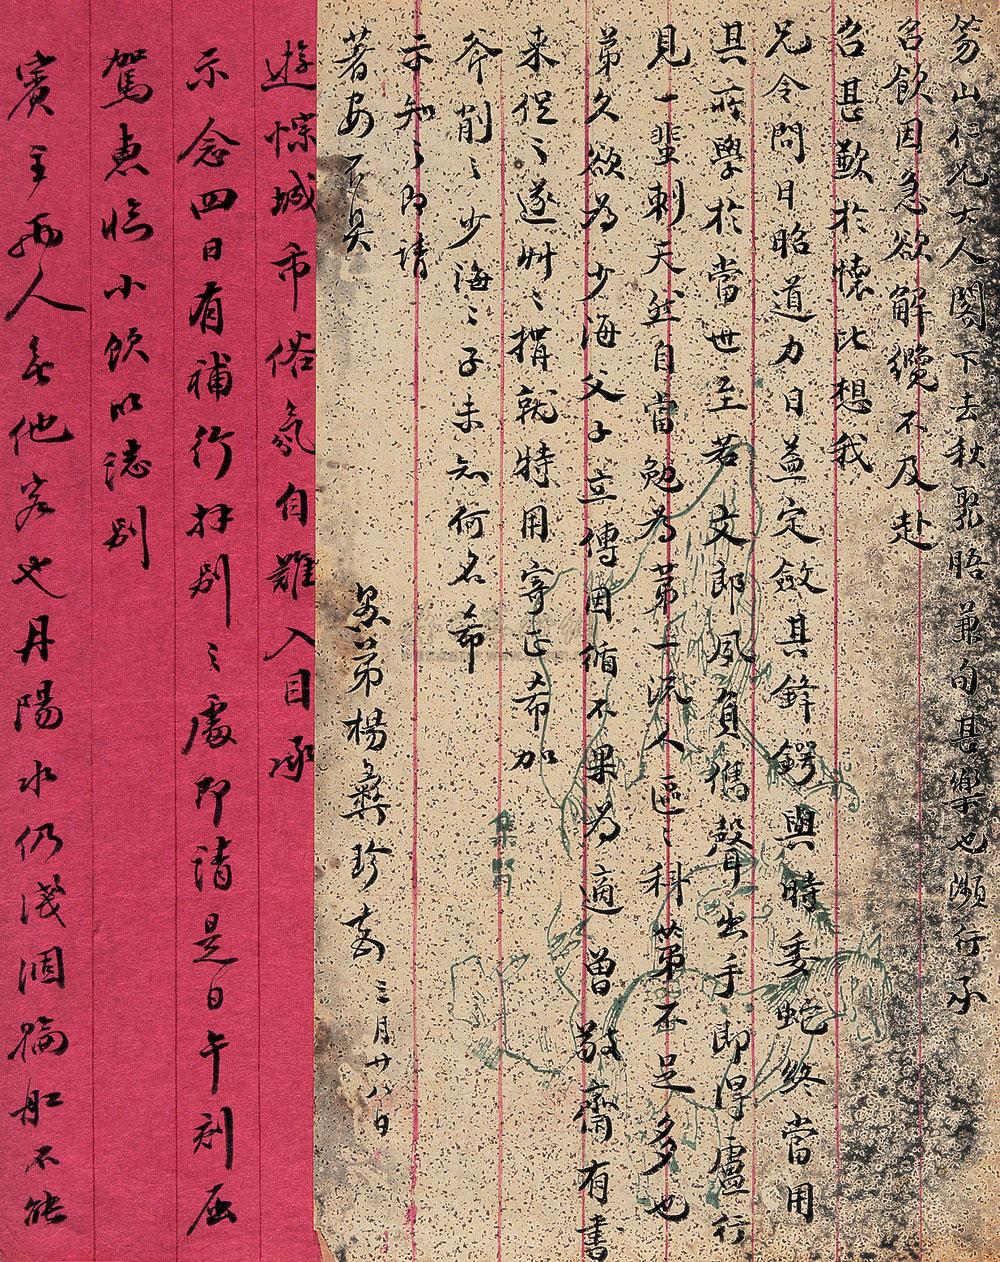 笏山仁兄大人閣下去秋飛晤兼旬甚樂也瀕行承
召飲因急欲解纜不及赴
召甚歉於懷比想我
兄令問日昭道力日益定斂其鋒鍔與時委蛇終當用
其所學於當世至若文郎夙負雋聲出手即得盧行
見一蜚刺天然自當勉為第一流人區區科第不足多也
弟久欲為少海父子立傳因循不果為適曾敬齋有書
来促促遂艸艸撰就特用寄正希加
斧削削少海海子未知何名希
示知知即請
著安不具
愚弟楊彝珍頓 三月廿八日
集賢
遊悰城市俗氛自難入目承
示念四日有補行拜別別處即請是日午刻屈
駕惠臨小飲以誌別
賓主兩人無他客也丹陽水仍淺涸輪船不能